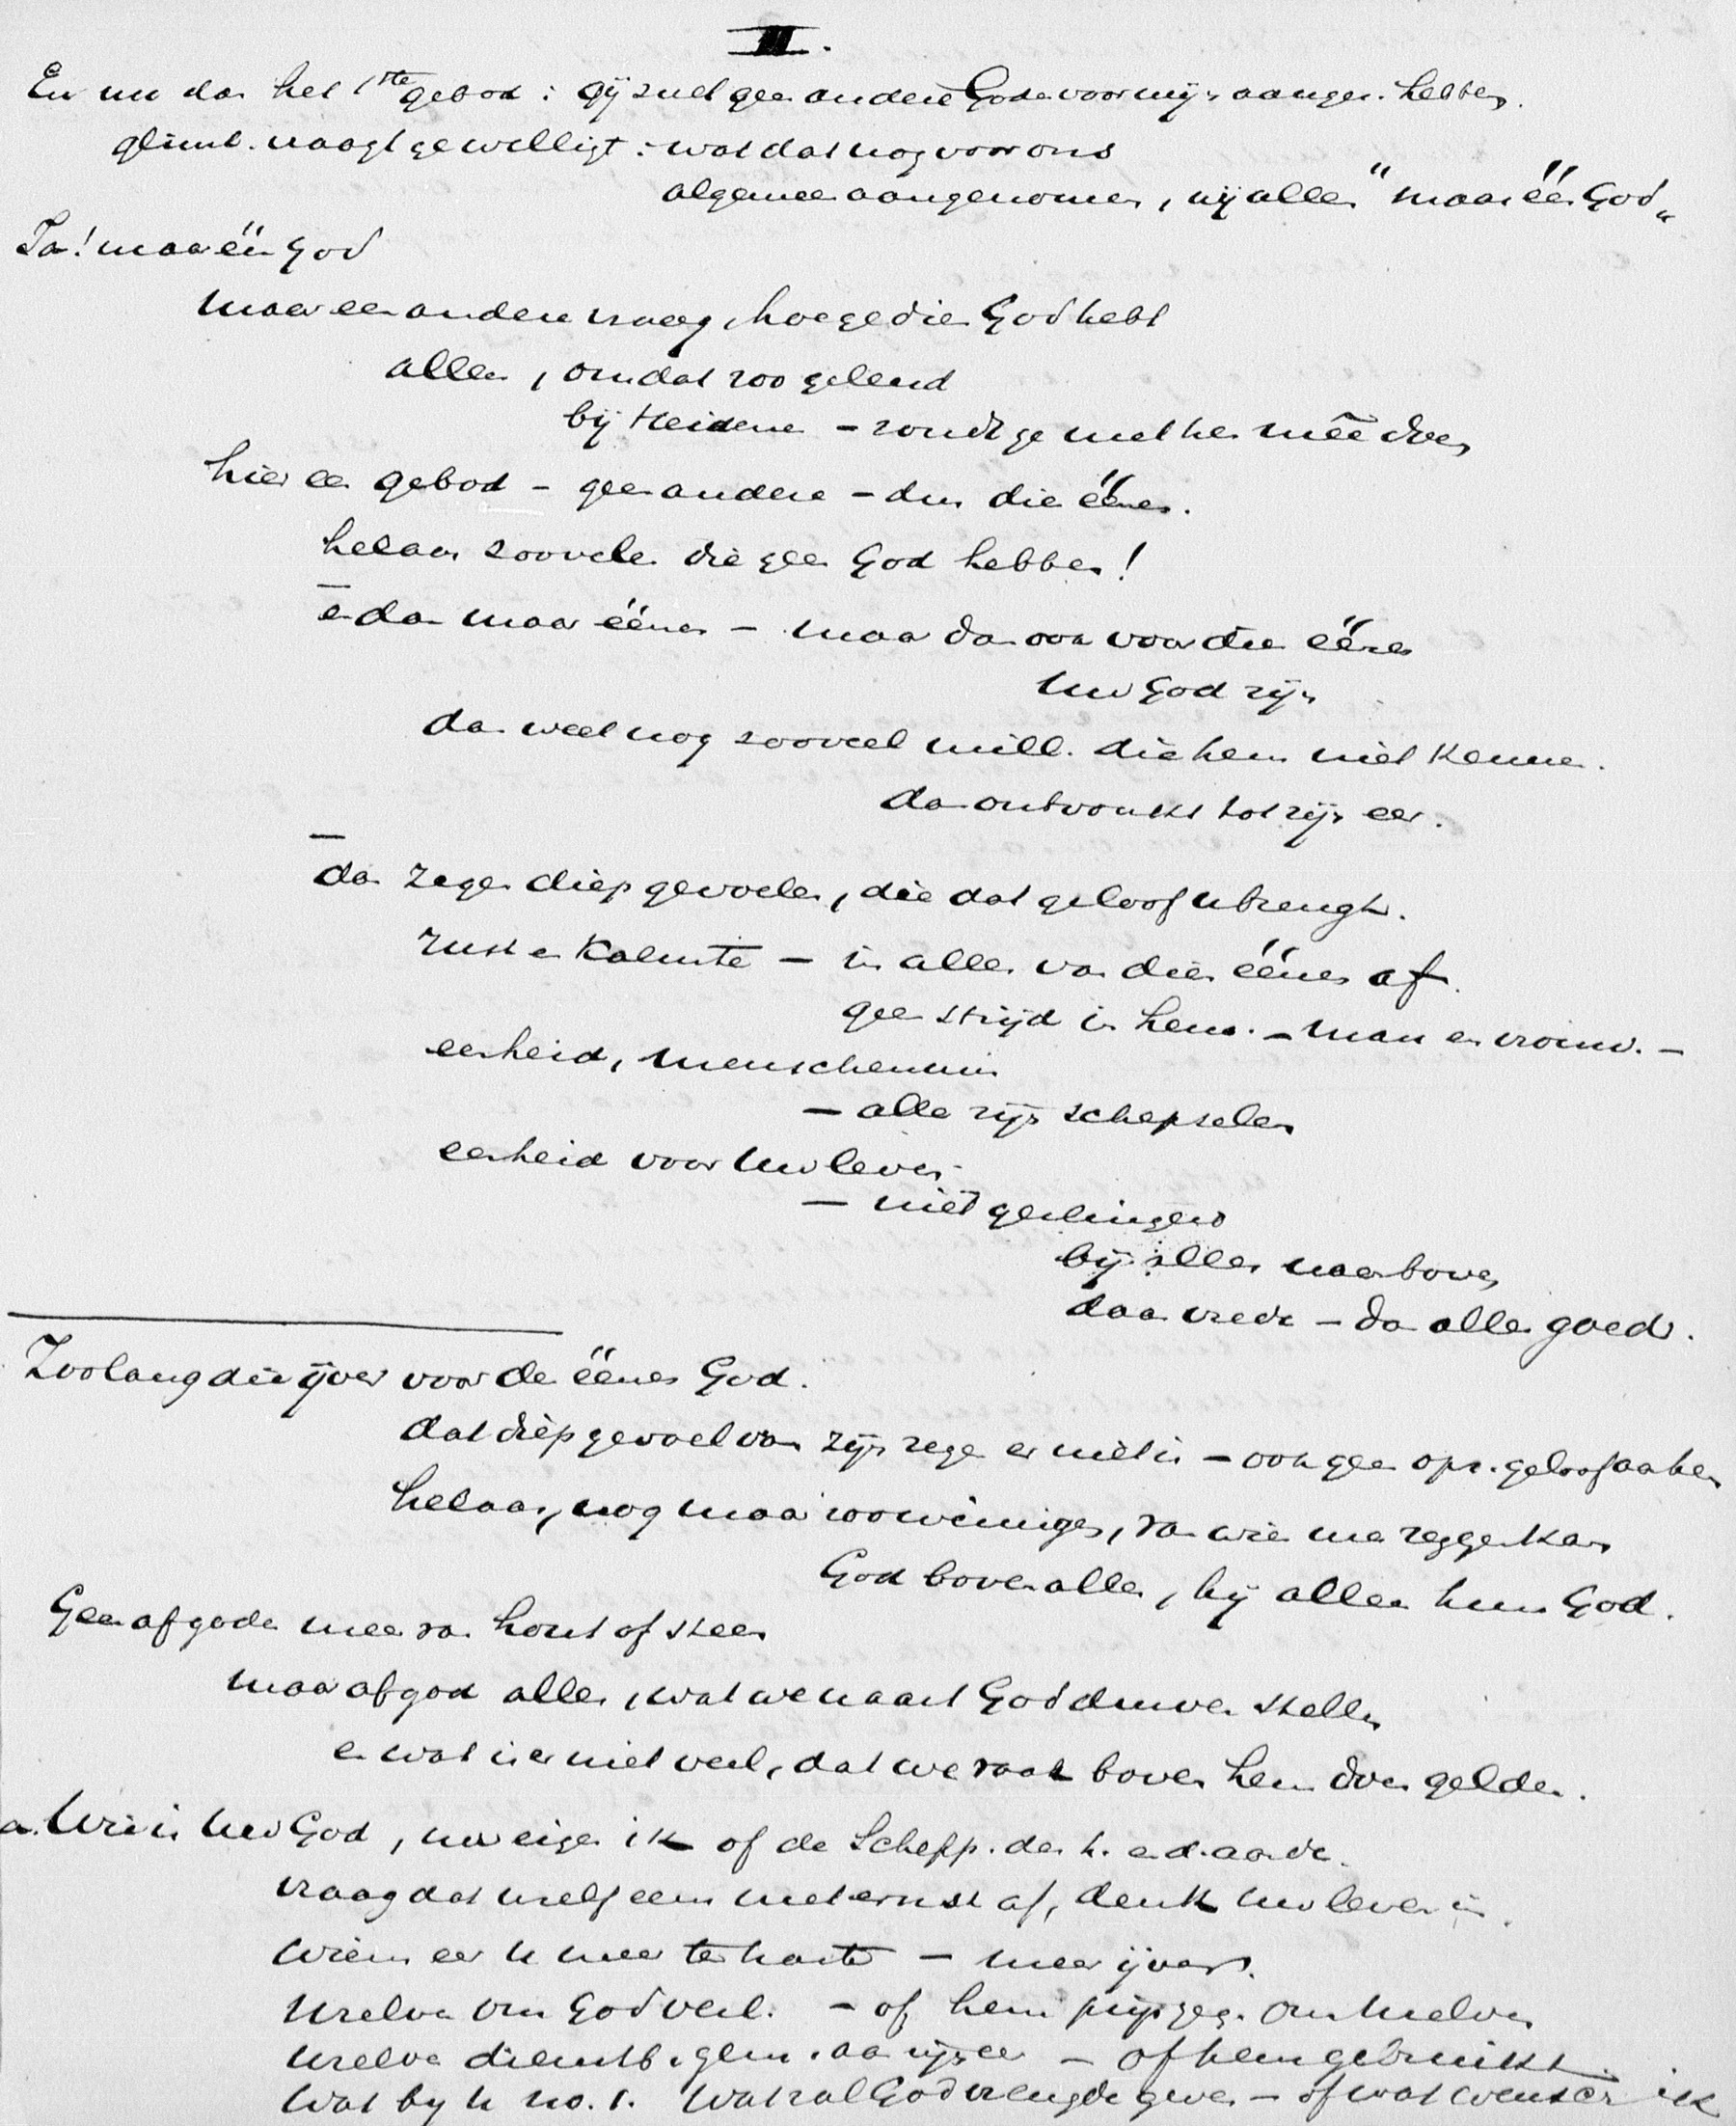 III.
En nu dan het 1ste gebod: gij zult geen andere Goden voor mijn aangez. hebben.
gliml. vraagt ge welligt: wat dat nog voor ons
algemeen aangenomen, wij allen "maar één God"
Ja! maar één God
maar een andere vraag, hoe ge dien God hebt
alleen, omdat zoo geleerd
bij Heidenen - zoudt ge met hen meê doen
hier een gebod - geen andere - dus die éénen.
helaas zoovelen die geen God hebben!
en dan maar éénen - maar dan ook voor dien éénen
Uw God zijn
dan weet nog zooveel mill. die hem niet kennen.
dan ontvonkt tot zijn eer.
dan zegen diep gevoelen, die dat geloof u brengt.
rust en kalmte - in alles van dien éénen af.
geen strijd in hem. - man en vrouw. -
eenheid, menschenmin
- alle zijn schepselen
eenheid voor Uw leven
- niet geslingerd
bij alles naar boven
daar vrede - dan alles goed.
Zoolang die ijver voor de éénen God.
dat diep gevoel van zijn zegen er niet is - ook geen opr. geloof aan hem
helaas, nog maar zoo weinigen, van wie men zeggen kan
God boven alles, hij alleen hun God.
Geen afgoden meer van hout of steen
maar afgod alles, wat we naast God durven stellen
en wat is er niet veel, dat we vaak boven hem doen gelden.
a. Wie is Uw God, uw eigen ik of de Schepp. des h. en d. aarde.
vraag dat uzelf eens met ernst af, denk Uw leven in.
Wiens eer U meer ter harte - meer ijvers.
Uzelve om God veil. - of hem prijsgeg. om Uzelven
Uzelve dienstb. gem. aan zijn eer - of hem gebruikt.
Wat bij U no. 1. Wat zal God vreugde geven - of wat wensch ik